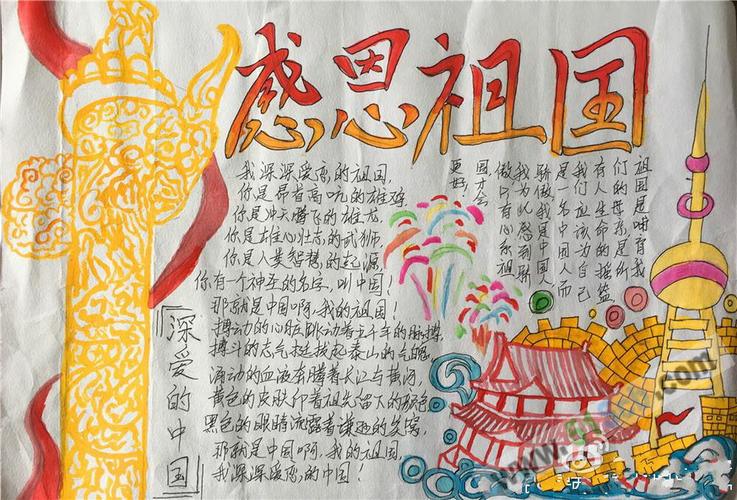 感恩祖国
我深深爱恋的祖国,
你是昂首高吭的雄鸡
你是冲天腾飞的雄龙
你是雄心壮志的武狮
你是人类智慧的起源,
你有一个神圣的名字,叫中国!
那就是中国啊,我的祖国!
搏动的心脏跳动着五千年的脉搏,
搏斗的志气挺起泰山的气魄,
涌动的血液奔腾着长江与黄河,
黄色的皮肤印着祖先留下的颜色,
黑色的眼睛流露着谦逊的笑窝,
那就是中国啊,我的祖国,
我深深爱恋的中国!
深爱的中国
祖国是哺育我
们的母亲是
有人生命的摇篮
我们应该为自己
是一名中国人而
骄傲,我是中国人
我为此感到骄
傲只有心系祖
国才会
更